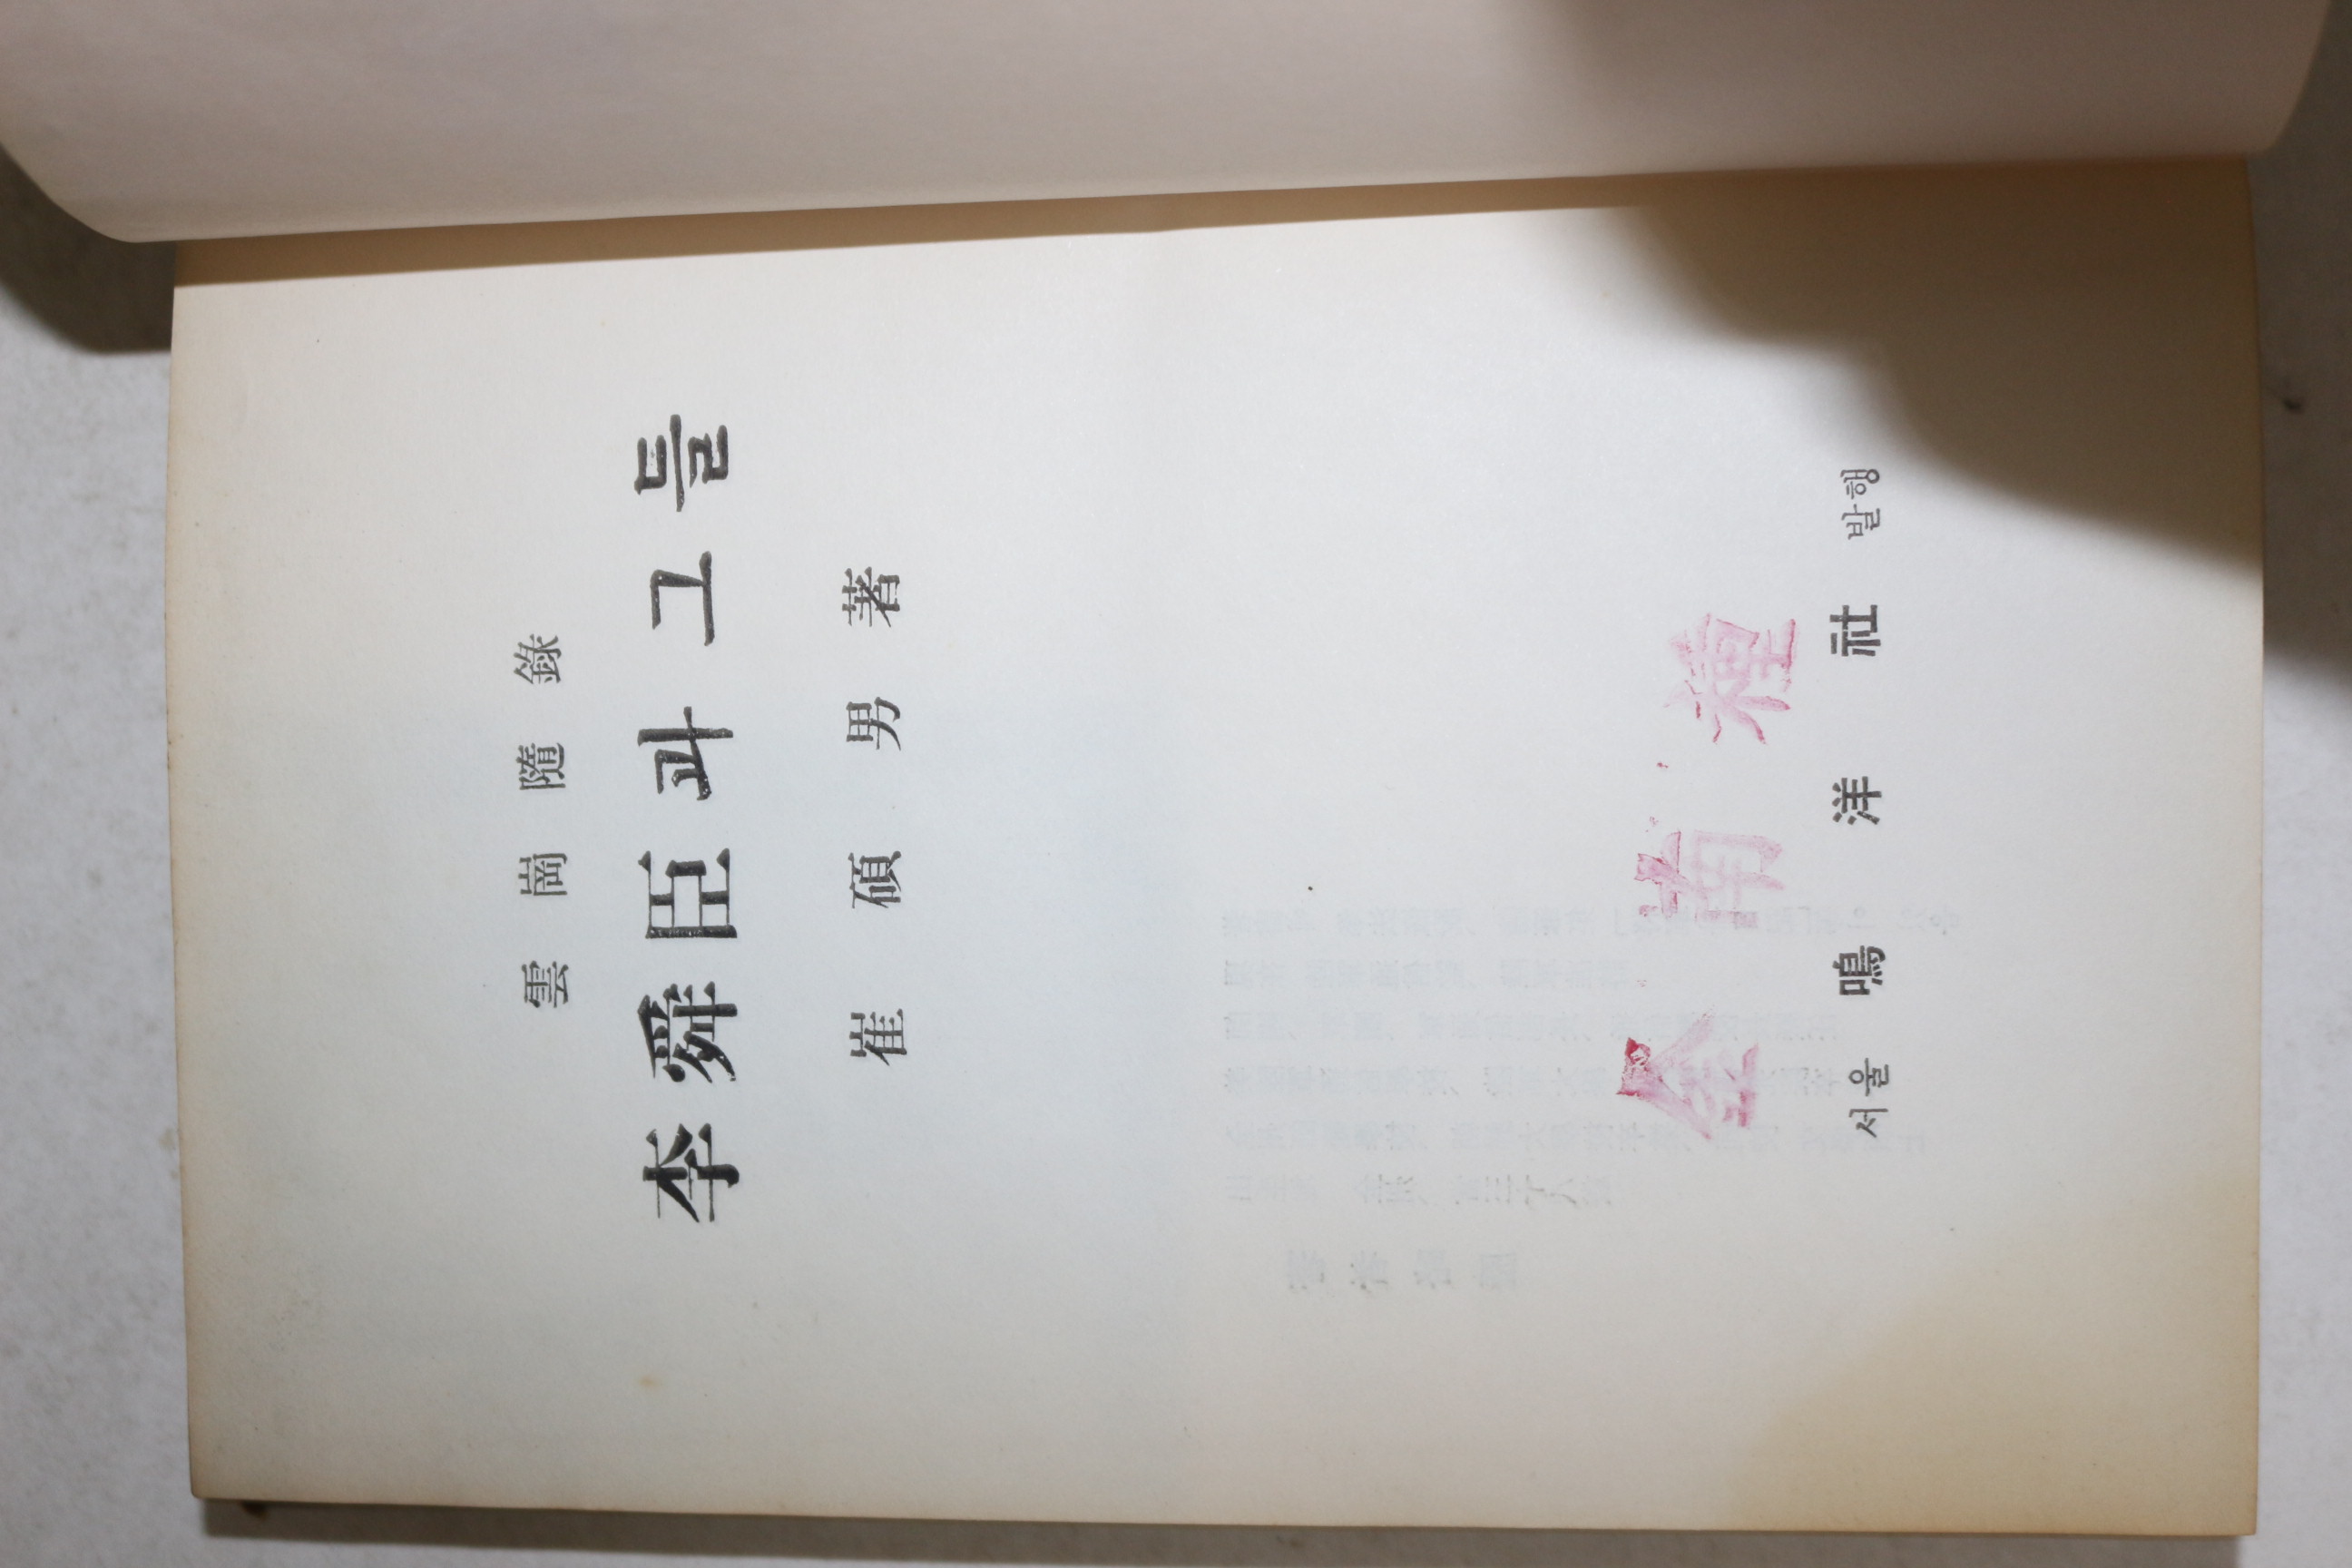 雲崗隨錄
李舜臣과 그들
崔碩男著
金南種
서울 鳴洋社 발행